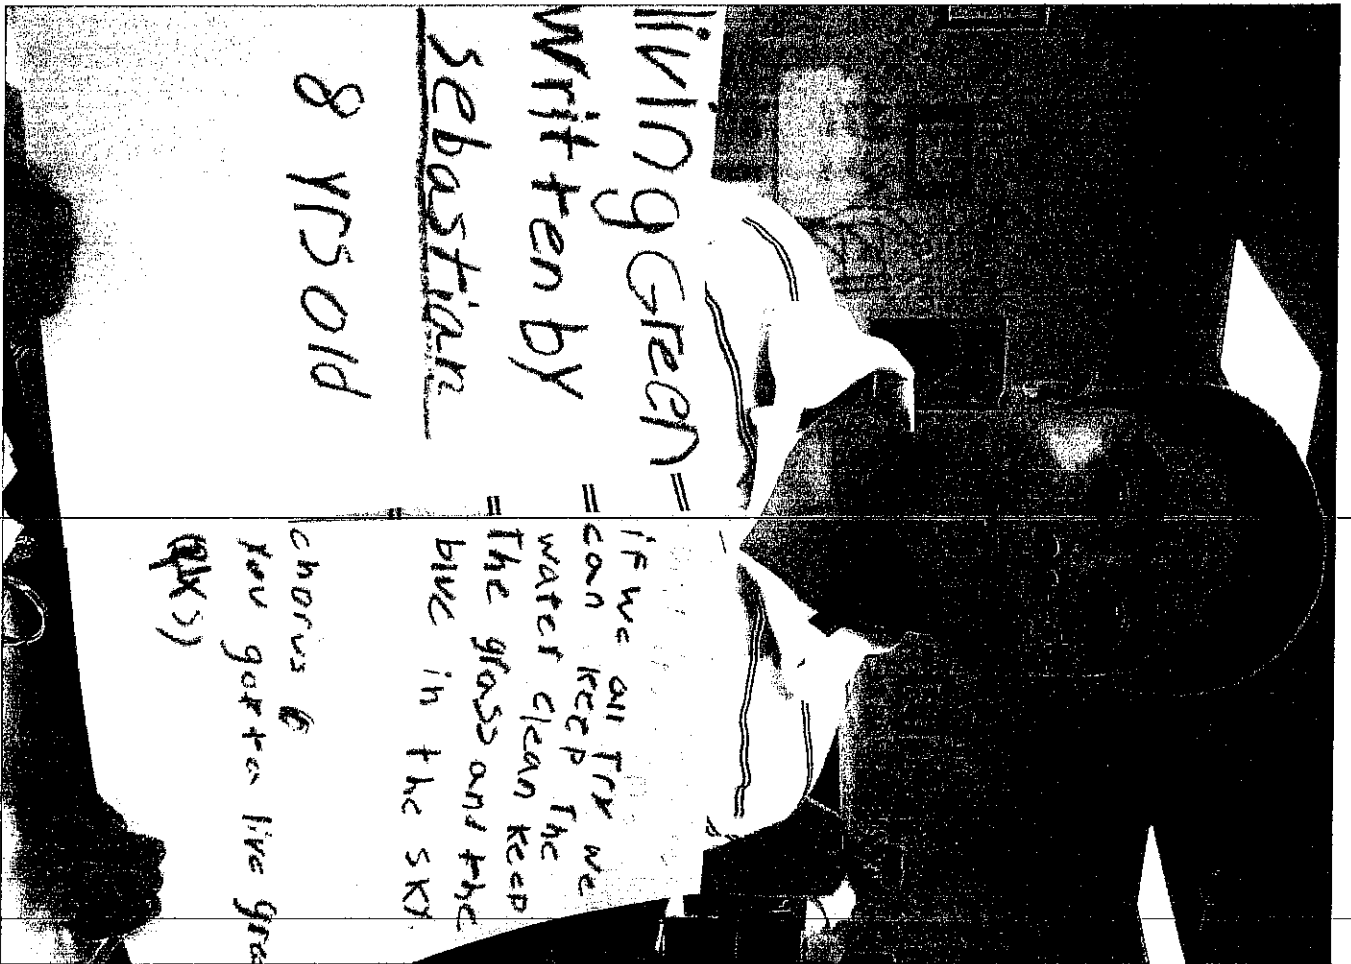 living Green
writ ten by
sebastian
8 yrs old
if we all Try we
can keep The
water clean keep
The grass and the
blue in the sky.
chorus
You gotta live gree